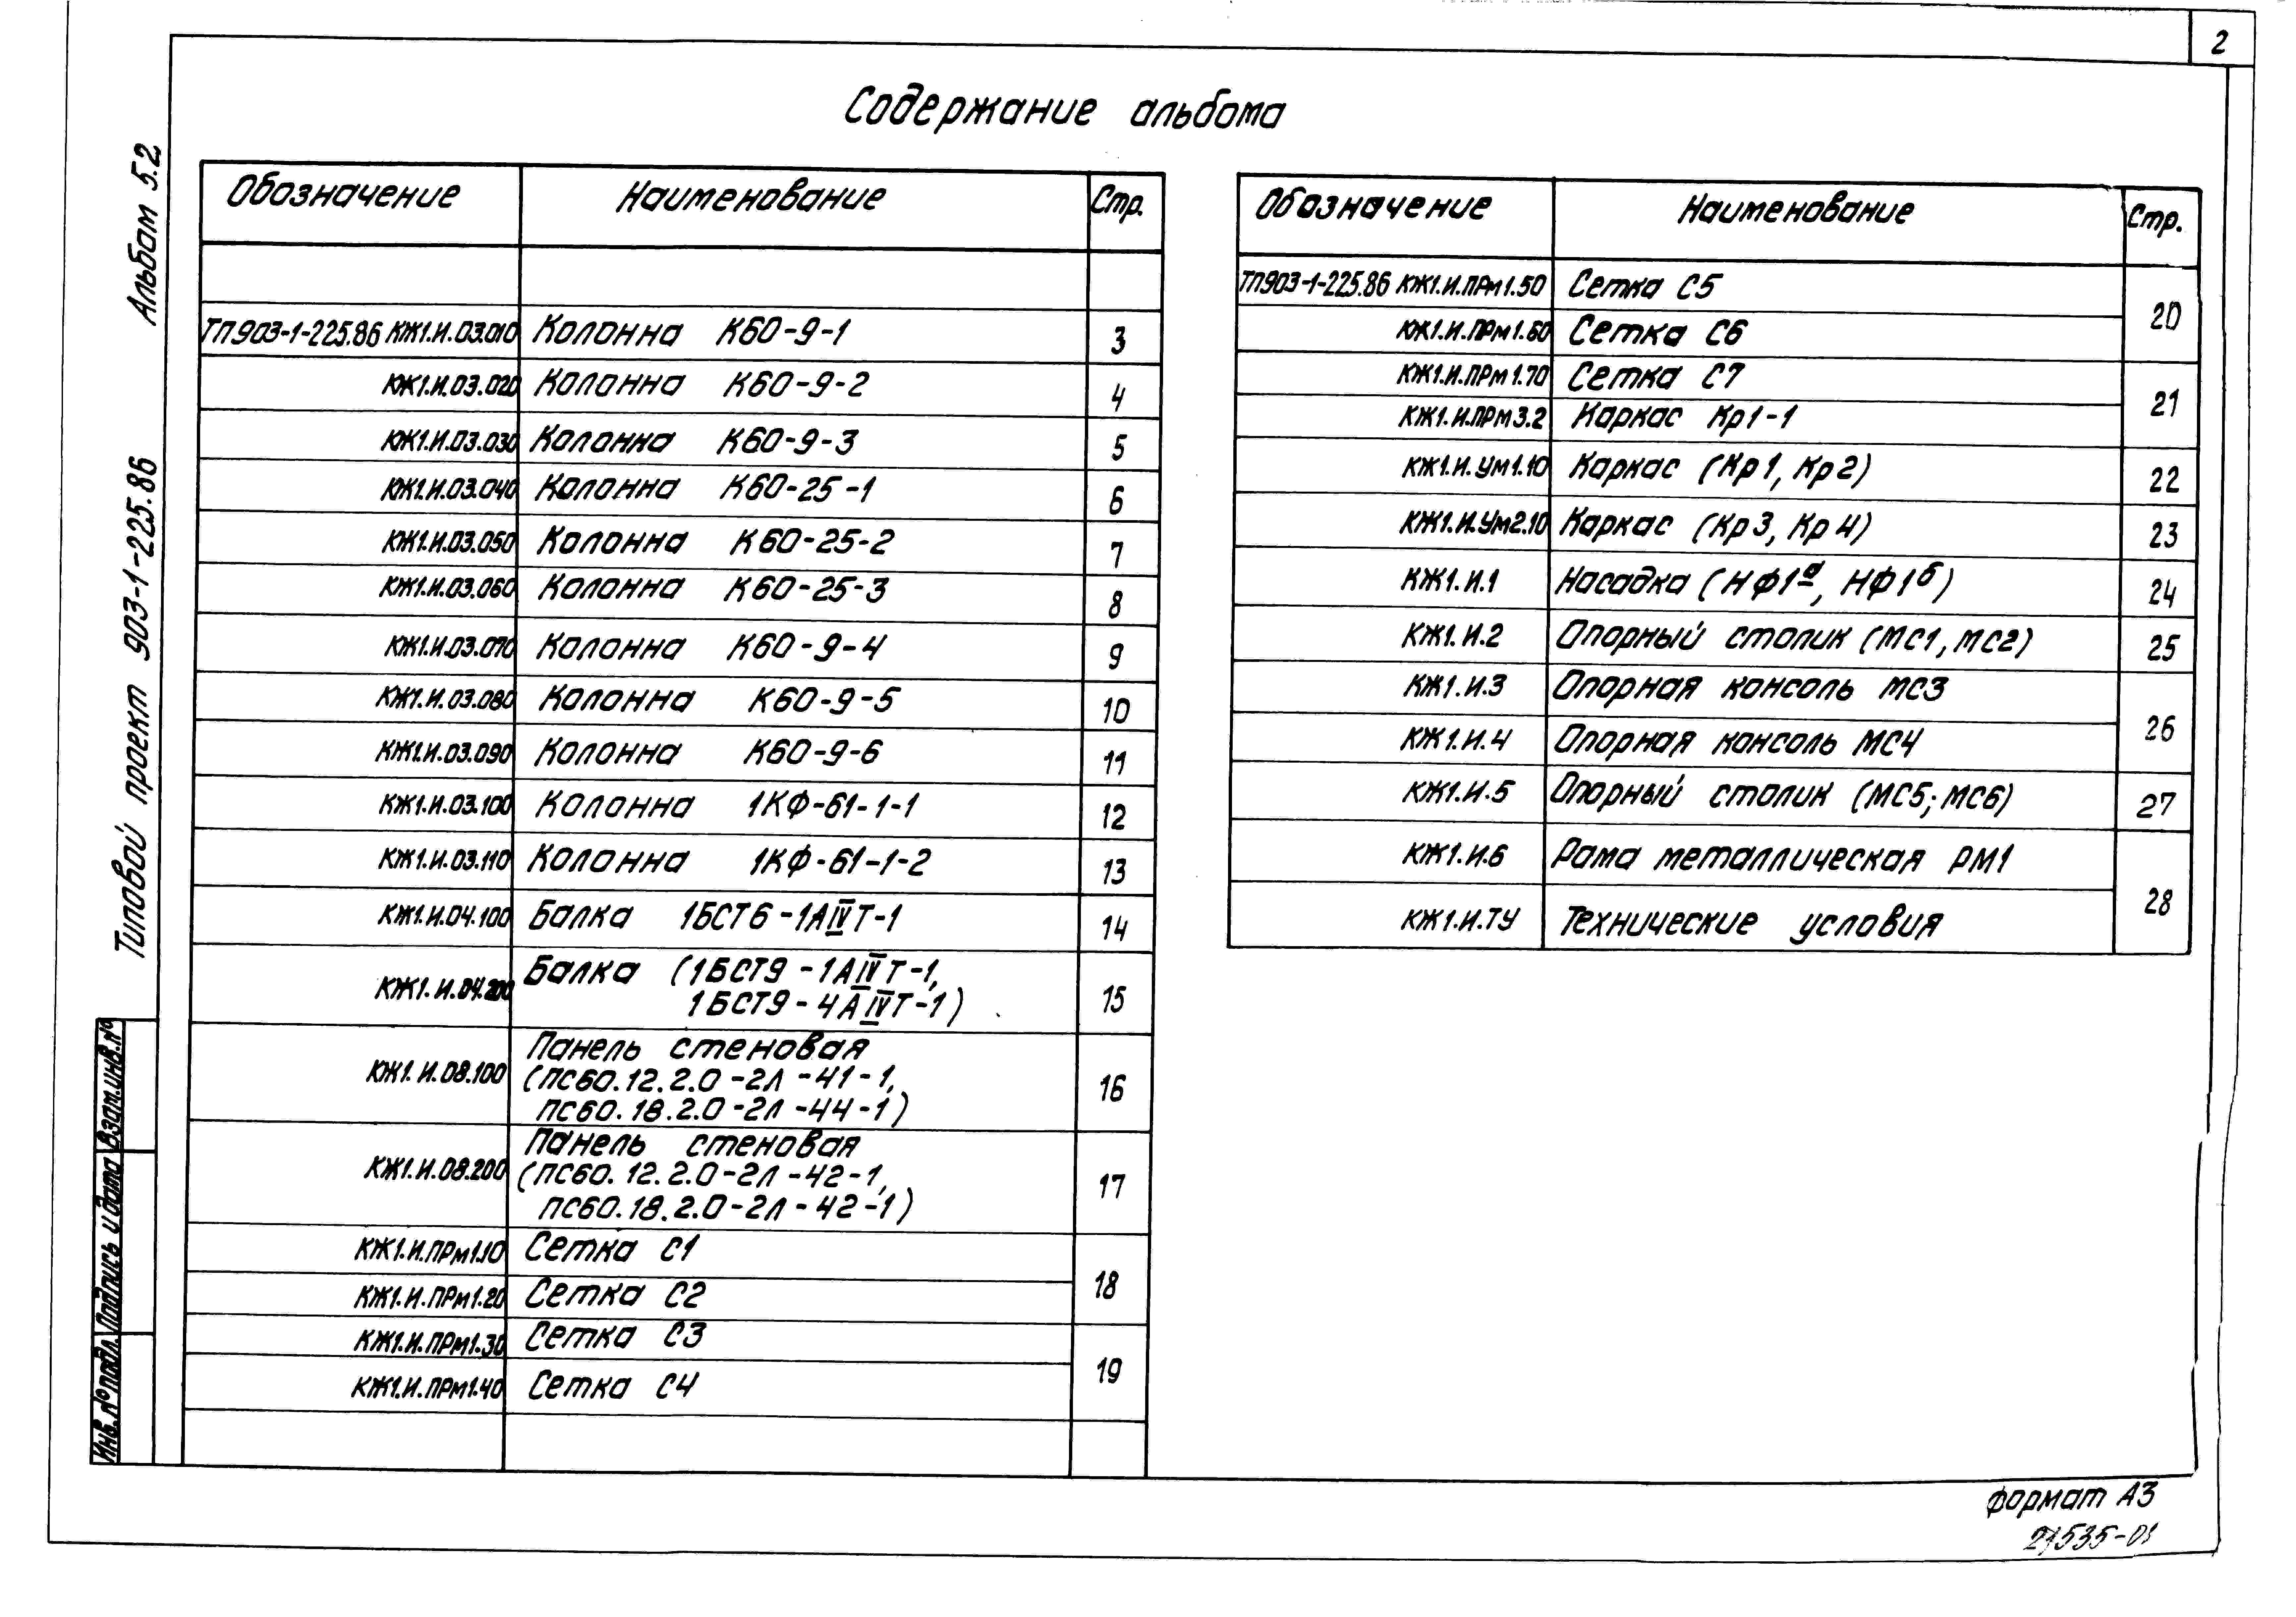 2
Содержание альбома
Альбом 5.2
Типовой проект 903-1-225.86
Взам.инв.№
Подпись и дата
Инв.№подл.
Обозначение Наименование Стр.
ТП903-1-225.86 КЖ1.И.03.010 Колонна К60-9-1 3
КЖ1.И.03.020 Колонна К60-9-2 4
КЖ1.И.03.030 Колонна К60-9-3 5
КЖ1.И.03.040 Колонна К60-25-1 6
КЖ1.И.03.050 Колонна К60-25-2 7
КЖ1.И.03.060 Колонна К60-25-3 8
КЖ1.И.03.070 Колонна К60-9-4 9
КЖ1.И.03.080 Колонна К60-9-5 10
КЖ1.И.03.090 Колонна К60-9-6 11
КЖ1.И.03.100 Колонна 1КФ-61-1-1 12
КЖ1.И.03.110 Колонна 1КФ-61-1-2 13
КЖ1.И.04.100 Балка 1БСТ6-1АIVТ-1 14
КЖ1.И.04.200 Балка (1БСТ9-1АIVТ-1,
1БСТ9-4АIVТ-1) 15
Панель стеновая
КЖ1.И.08.100 (ПС60.12.2.0-2Л-41-1, 16
ПС60.18.2.0-2Л-44-1)
Панель стеновая
КЖ1.И.08.200 (ПС60.12.2.0-2Л-42-1, 17
ПС60.18.2.0-2Л-42-1)
КЖ1.И.ПРм1.10 Сетка С1
18
КЖ1.И.ПРм1.20 Сетка С2
КЖ1.И.ПРм1.30 Сетка С3
19
КЖ1.И.ПРм1.40 Сетка С4
Обозначение Наименование Стр.
ТП903-1-225.86 КЖ1.И.ПРм1.50 Сетка С5
20
КЖ1.И.ПРм1.60 Сетка С6
КЖ1.И.ПРм1.70 Сетка С7
21
КЖ1.И.ПРм3.2 Каркас Кр1-1
КЖ1.И.Ум1.10 Каркас (Кр1, Кр2) 22
КЖ1.И.Ум2.10 Каркас (Кр3, Кр4) 23
КЖ1.И.1 Насадка (НФ1а, НФ1б) 24
КЖ1.И.2 Опорный столик (МС1, МС2) 25
КЖ1.И.3 Опорная консоль МС3
26
КЖ1.И.4 Опорная консоль МС4
КЖ1.И.5 Опорный столик (МС5; МС6) 27
КЖ1.И.6 Рама металлическая РМ1
28
КЖ1.И.ТУ Технические условия
Формат А3